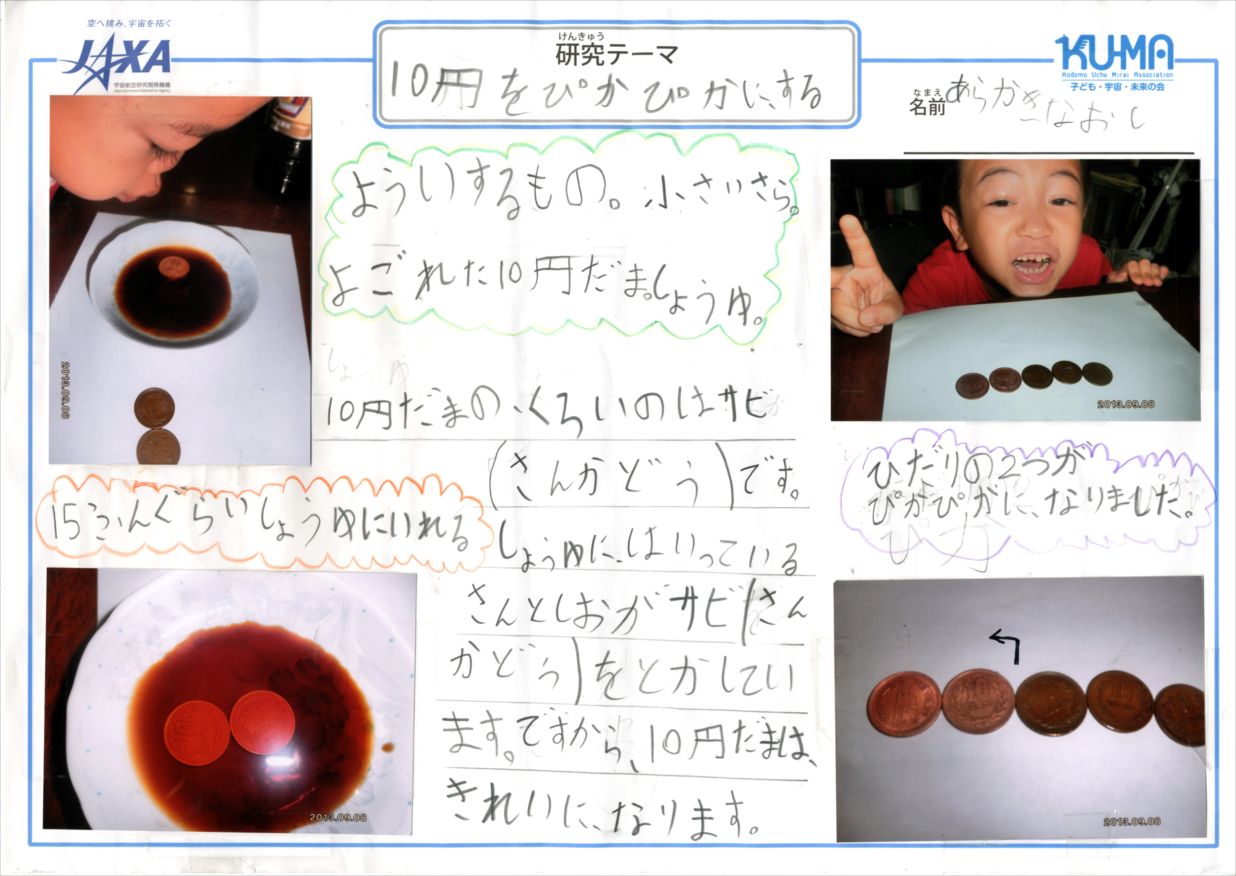 空へ挑み、宇宙を拓く
JAXA
宇宙航空研究開発機構
Japan Aerospace Exploration Agency
けんきゅう
研究テーマ
10円をぴかぴかにする
KU-MA
Kodomo Uchu Mirai Association
子ども・宇宙・未来の会
なまえ
名前
あらかきなおし
よういするもの。小さいさら。
よごれた10円だま。しょうゆ。
2013.09.08
2013.09.08
10円だまのくろいのはサビ
(さんかどう)です。
しょうゆにはいっている
さんとしおがサビ(さん
かどう)をとかしてい
ます。ですから、10円だまは、
きれいになります。
15ふんぐらいしょうゆにいれる
ひだりの2つが
ぴかぴかになりました。
2013.09.08
2013.09.08